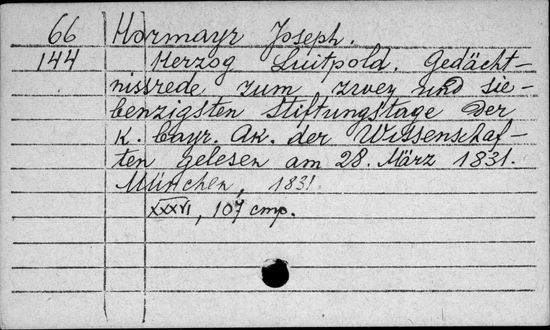 66 Hormayr Joseph.
144 Herzog Luitpold. Gedächt-
nissrede zum zwey und sie-
benzigsten Stiftungstage der
K. bayr. Ak. der Wissenschaf-
ten gelesen am 28. März 1831.
München, 1831.
XXXVI, 107 стр.